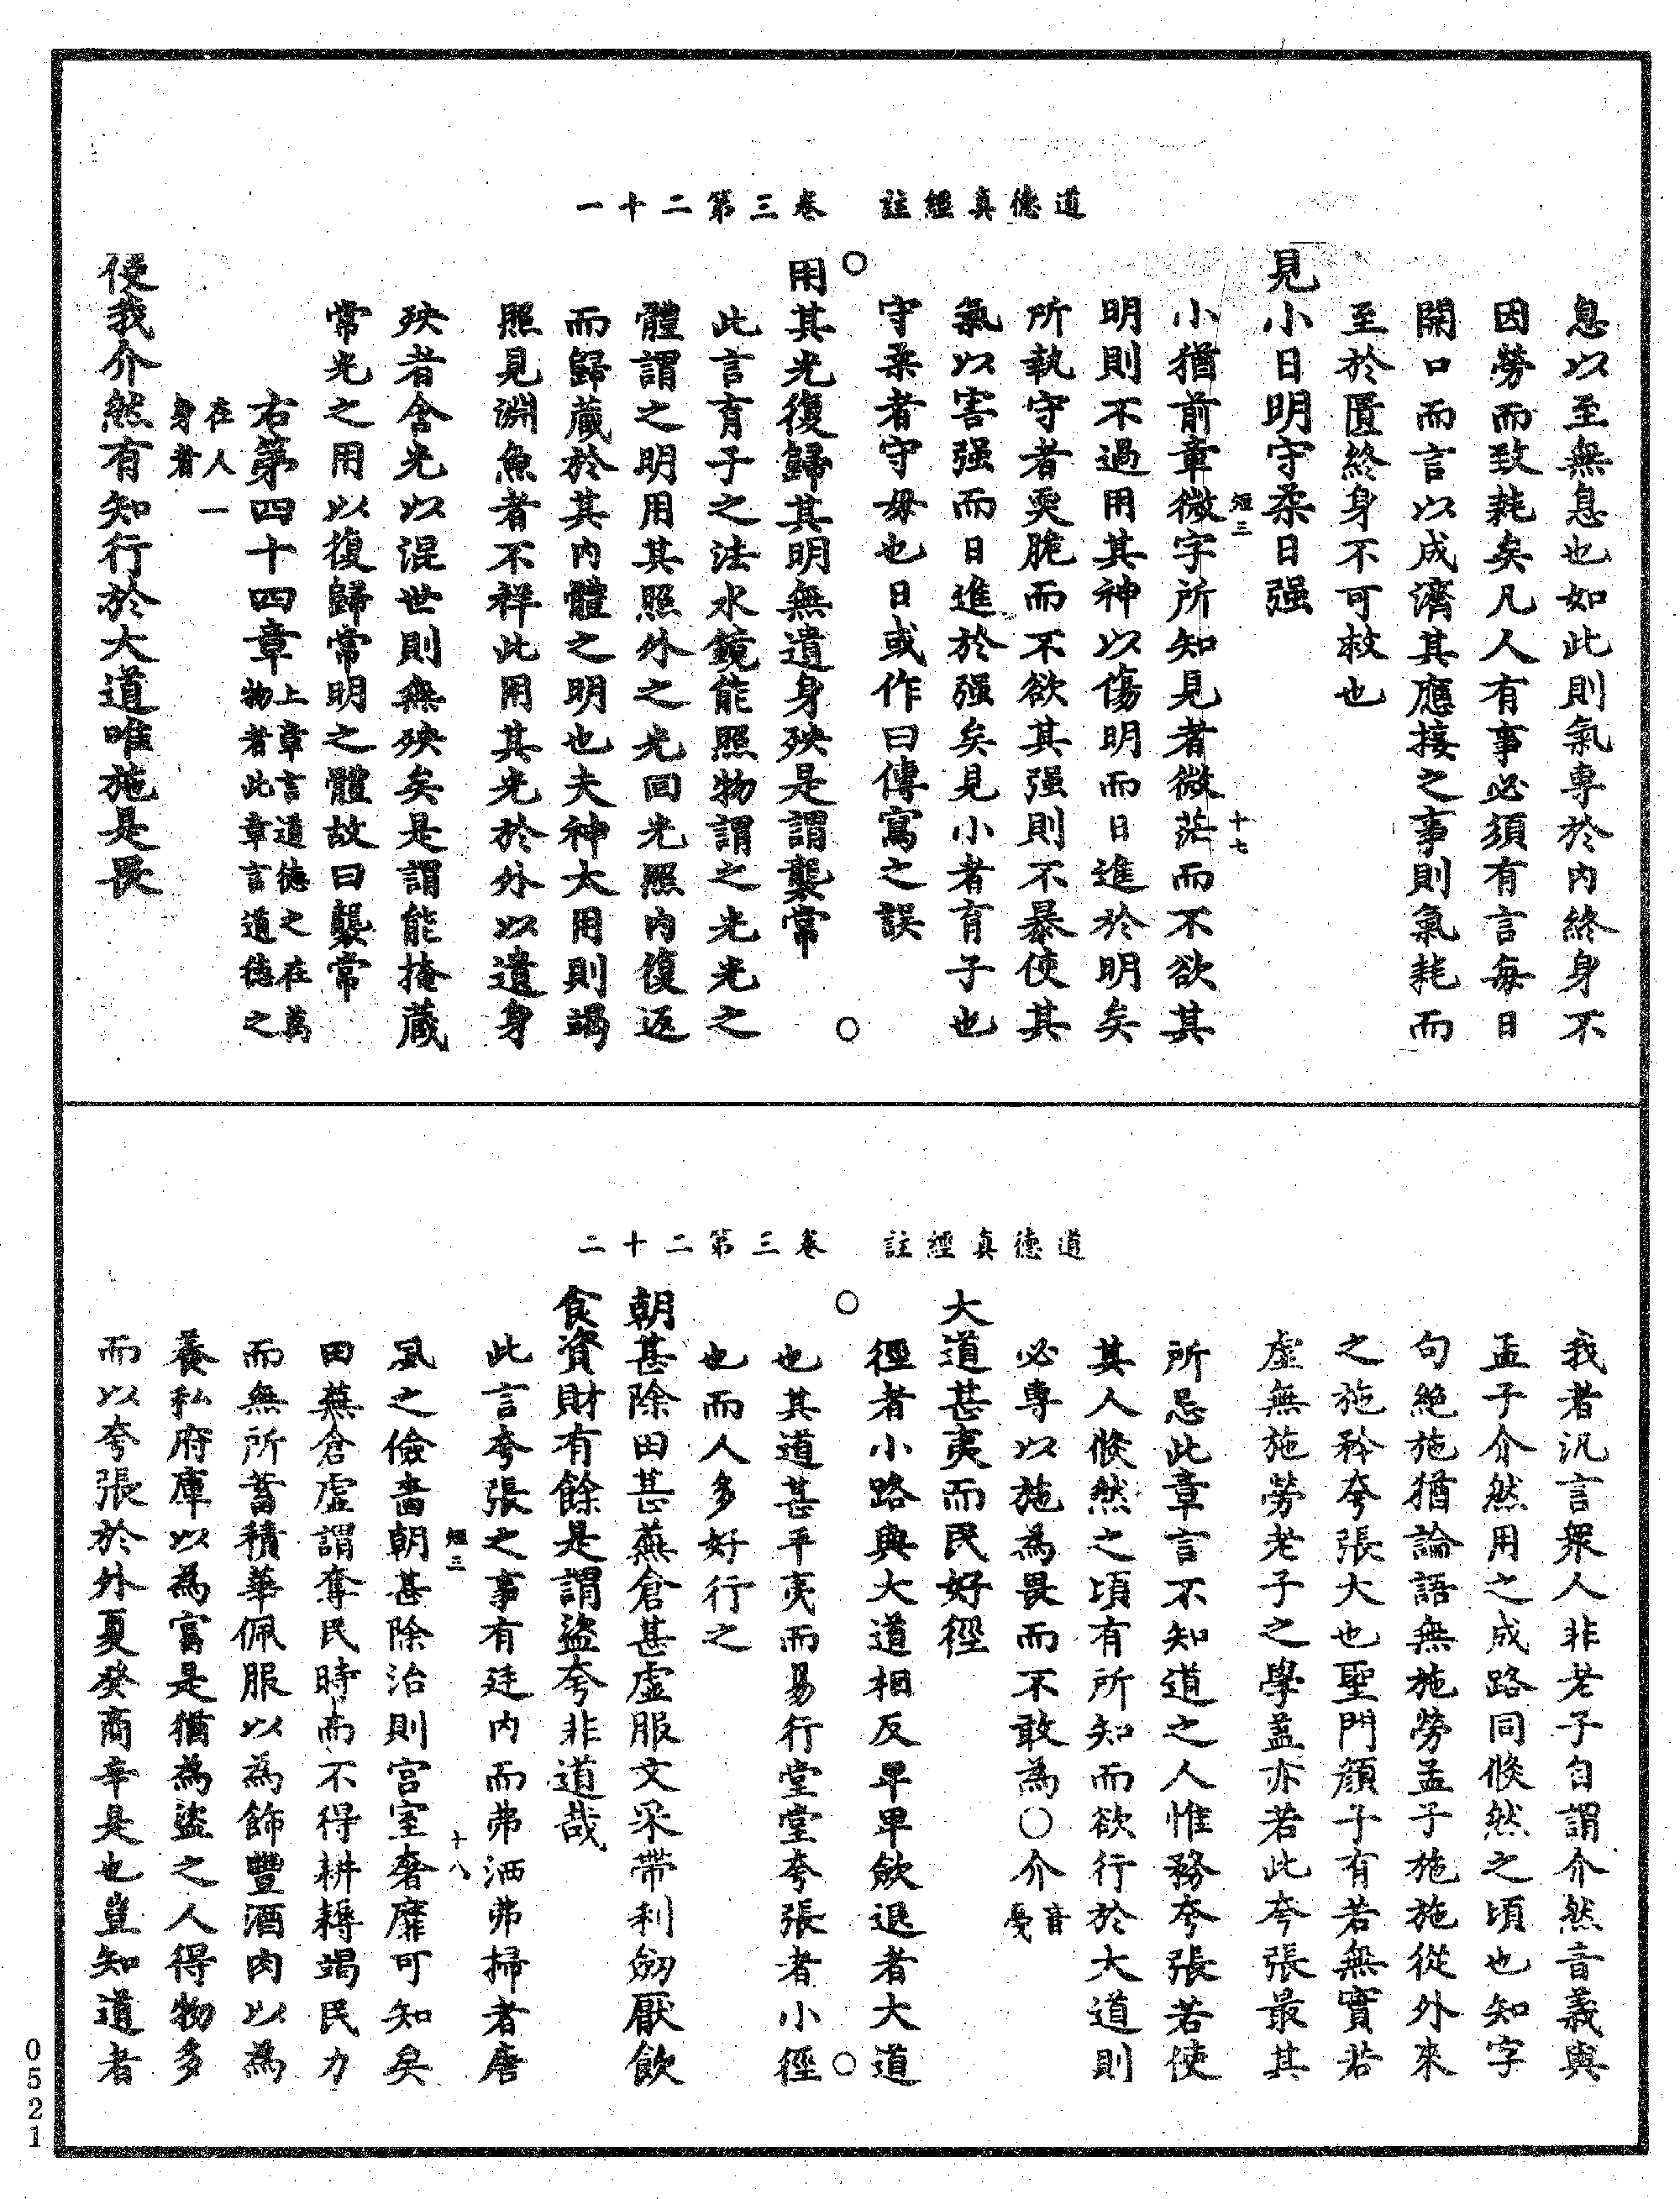 道德真經註　卷三第二十一
息以至無息也如此則氣専於内終身不
因勞而致耗矣凡人有事必須有言每日
開口而言以成濟其應接之事則氣耗而
至於匱終身不可救也
見小日明守柔日强
小猶前章微字所知見者微茫而不欲其
短三　十七
明則不過用其神以傷明而日進於明矣
所執守者耎脆而不欲其强則不暴使其
氣以害强而日進於强矣見小者育子也
守柔者守毋也日或作曰傳寫之誤
○　○
用其光復歸其明無遺身殃是謂襲常
此言育子之法水鏡能照物謂之光光之
體謂之明用其照外之光回光照内復返
而歸藏於其内體之明也夫神太用則竭
照見淵魚者不祥此用其光於外以遺身
殃者含光以混世則無殃矣是謂能掩藏
常光之用以復歸常明之體故曰襲常
右第四十四章上章言道德之在萬
物者此章言道德之
在人一
身者
使我介然有知行於大道唯施是畏
道德真經註　卷三第二十二
我者汎言衆人非老子自謂介然音義與
孟子介然用之成路同倐然之頃也知字
句絶施猶論語無施勞孟子施施從外來
之施矜夸張大也聖門顔子有若無實若
虛無施勞老子之學蓋亦若此夸張最其
所忌此章言不知道之人惟務夸張若使
其人倐然之頃有所知而欲行於大道則
必専以施為畏而不敢為○介音
戞
大道甚夷而民好徑
徑者小路與大道相反早早歛退者大道
○　○
也其道甚平夷而易行堂堂夸張者小徑
也而人多好行之
朝甚除田甚蕪倉甚虛服文采帶利劒厭飲
食資財有餘是謂盜夸非道哉
此言夸張之事有廷内而弗洒弗掃者唐
短三　十八
風之儉嗇朝甚除治則宮室奢靡可知矣
田蕪倉虛謂奪民時而不得耕耨竭民力
而無所蓄積華佩服以為飾豐酒肉以為
養私府庫以為富是猶為盜之人得物多
而以夸張於外夏癸商辛是也豈知道者
0521